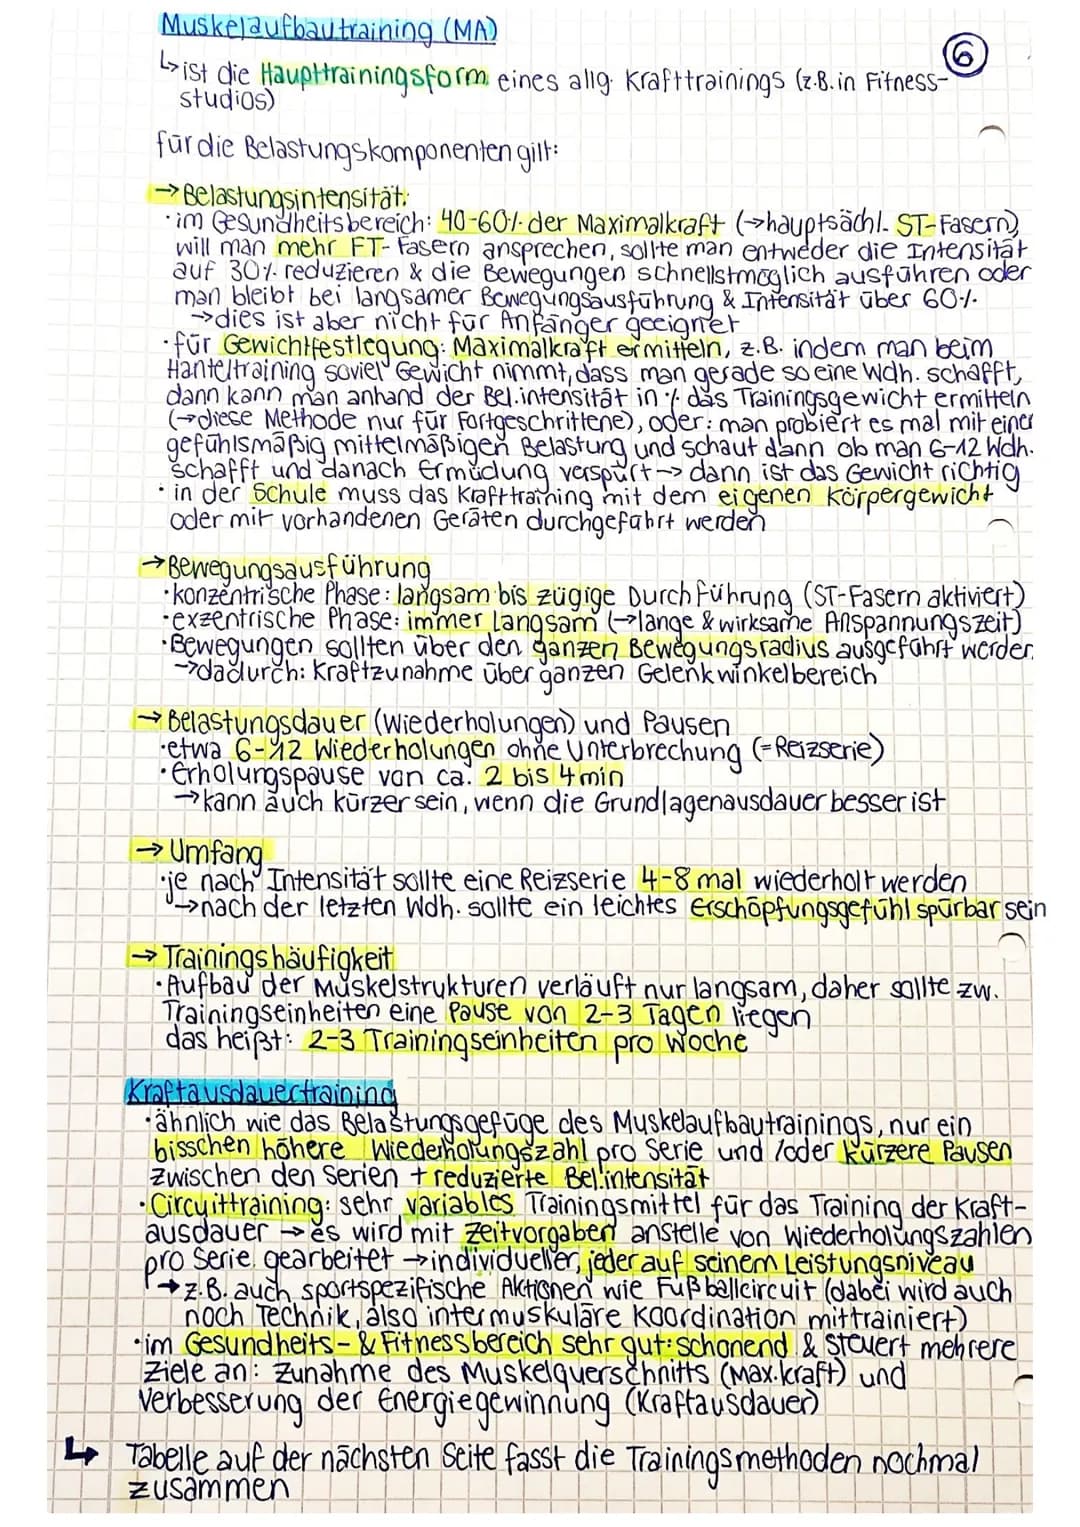 Muskelaufbautraining (MA)
6
↳ ist die Haupttrainingsform eines allg. Krafttrainings (z.B. in Fitness-
studios)
für die Belastungskomponenten gilt:
→ Belastungsintensität:
· im Gesundheitsbereich: 40-60% der Maximalkraft (→ hauptsächl. ST-Fasern),
will man mehr FT-Fasern ansprechen, sollte man entweder die Intensität
auf 30% reduzieren & die Bewegungen schnellstmöglich ausführen oder
man bleibt bei langsamer Bewegungsausführung & Intensität über 60%.
→ dies ist aber nicht für Anfänger geeignet
· für Gewichtfestlegung: Maximalkraft ermitteln, z.B. indem man beim
Hanteltraining soviel Gewicht nimmt, dass man gerade so eine Wdh. schafft,
dann kann man anhand der Bel.intensität in % das Trainingsgewicht ermitteln
(→ diese Methode nur für Fortgeschrittene), oder: man probiert es mal mit einer
gefühlsmäßig mittelmäßigen Belastung und schaut dann ob man 6-12 Wdh.
schafft und danach Ermüdung verspürt → dann ist das Gewicht richtig
· in der Schule muss das Krafttraining mit dem eigenen Körpergewicht
oder mit vorhandenen Geräten durchgeführt werden
→ Bewegungsausführung
· konzentrische Phase: langsam bis zügige Durchführung (ST-Fasern aktiviert)
· exzentrische Phase: immer langsam (→ lange & wirksame Anspannungszeit)
· Bewegungen sollten über den ganzen Bewegungsradius ausgeführt werden
→ dadurch: Kraftzunahme über ganzen Gelenkwinkelbereich
→ Belastungsdauer (Wiederholungen) und Pausen
· etwa 6-12 Wiederholungen ohne Unterbrechung (= Reizserie)
· Erholungspause von ca. 2 bis 4 min
→ kann auch kürzer sein, wenn die Grundlagenausdauer besser ist
→ Umfang
· je nach Intensität sollte eine Reizserie 4-8 mal wiederholt werden
↳ nach der letzten Wdh. sollte ein leichtes Erschöpfungsgefühl spürbar sein
→ Trainingshäufigkeit
· Aufbau der Muskelstrukturen verläuft nur langsam, daher sollte zw.
Trainingseinheiten eine Pause von 2-3 Tagen liegen
das heißt: 2-3 Trainingseinheiten pro Woche
Kraftausdauertraining
· ähnlich wie das Belastungsgefüge des Muskelaufbautrainings, nur ein
bisschen höhere Wiederholungszahl pro Serie und /oder kürzere Pausen
zwischen den Serien + reduzierte Bel.intensität
· Circuittraining: sehr variables Trainingsmittel für das Training der Kraft-
ausdauer → es wird mit Zeitvorgaben anstelle von Wiederholungszahlen
pro Serie gearbeitet → individueller, jeder auf seinem Leistungsniveau
↳ z.B. auch sportspezifische Aktionen wie Fußballcircuit (dabei wird auch
noch Technik, also intermuskuläre Koordination mittrainiert)
· im Gesundheits- & Fitnessbereich sehr gut: schonend & steuert mehrere
Ziele an: Zunahme des Muskelquerschnitts (Max.kraft) und
Verbesserung der Energiegewinnung (Kraftausdauer)
↳ Tabelle auf der nächsten Seite fasst die Trainingsmethoden nochmal
zusammen